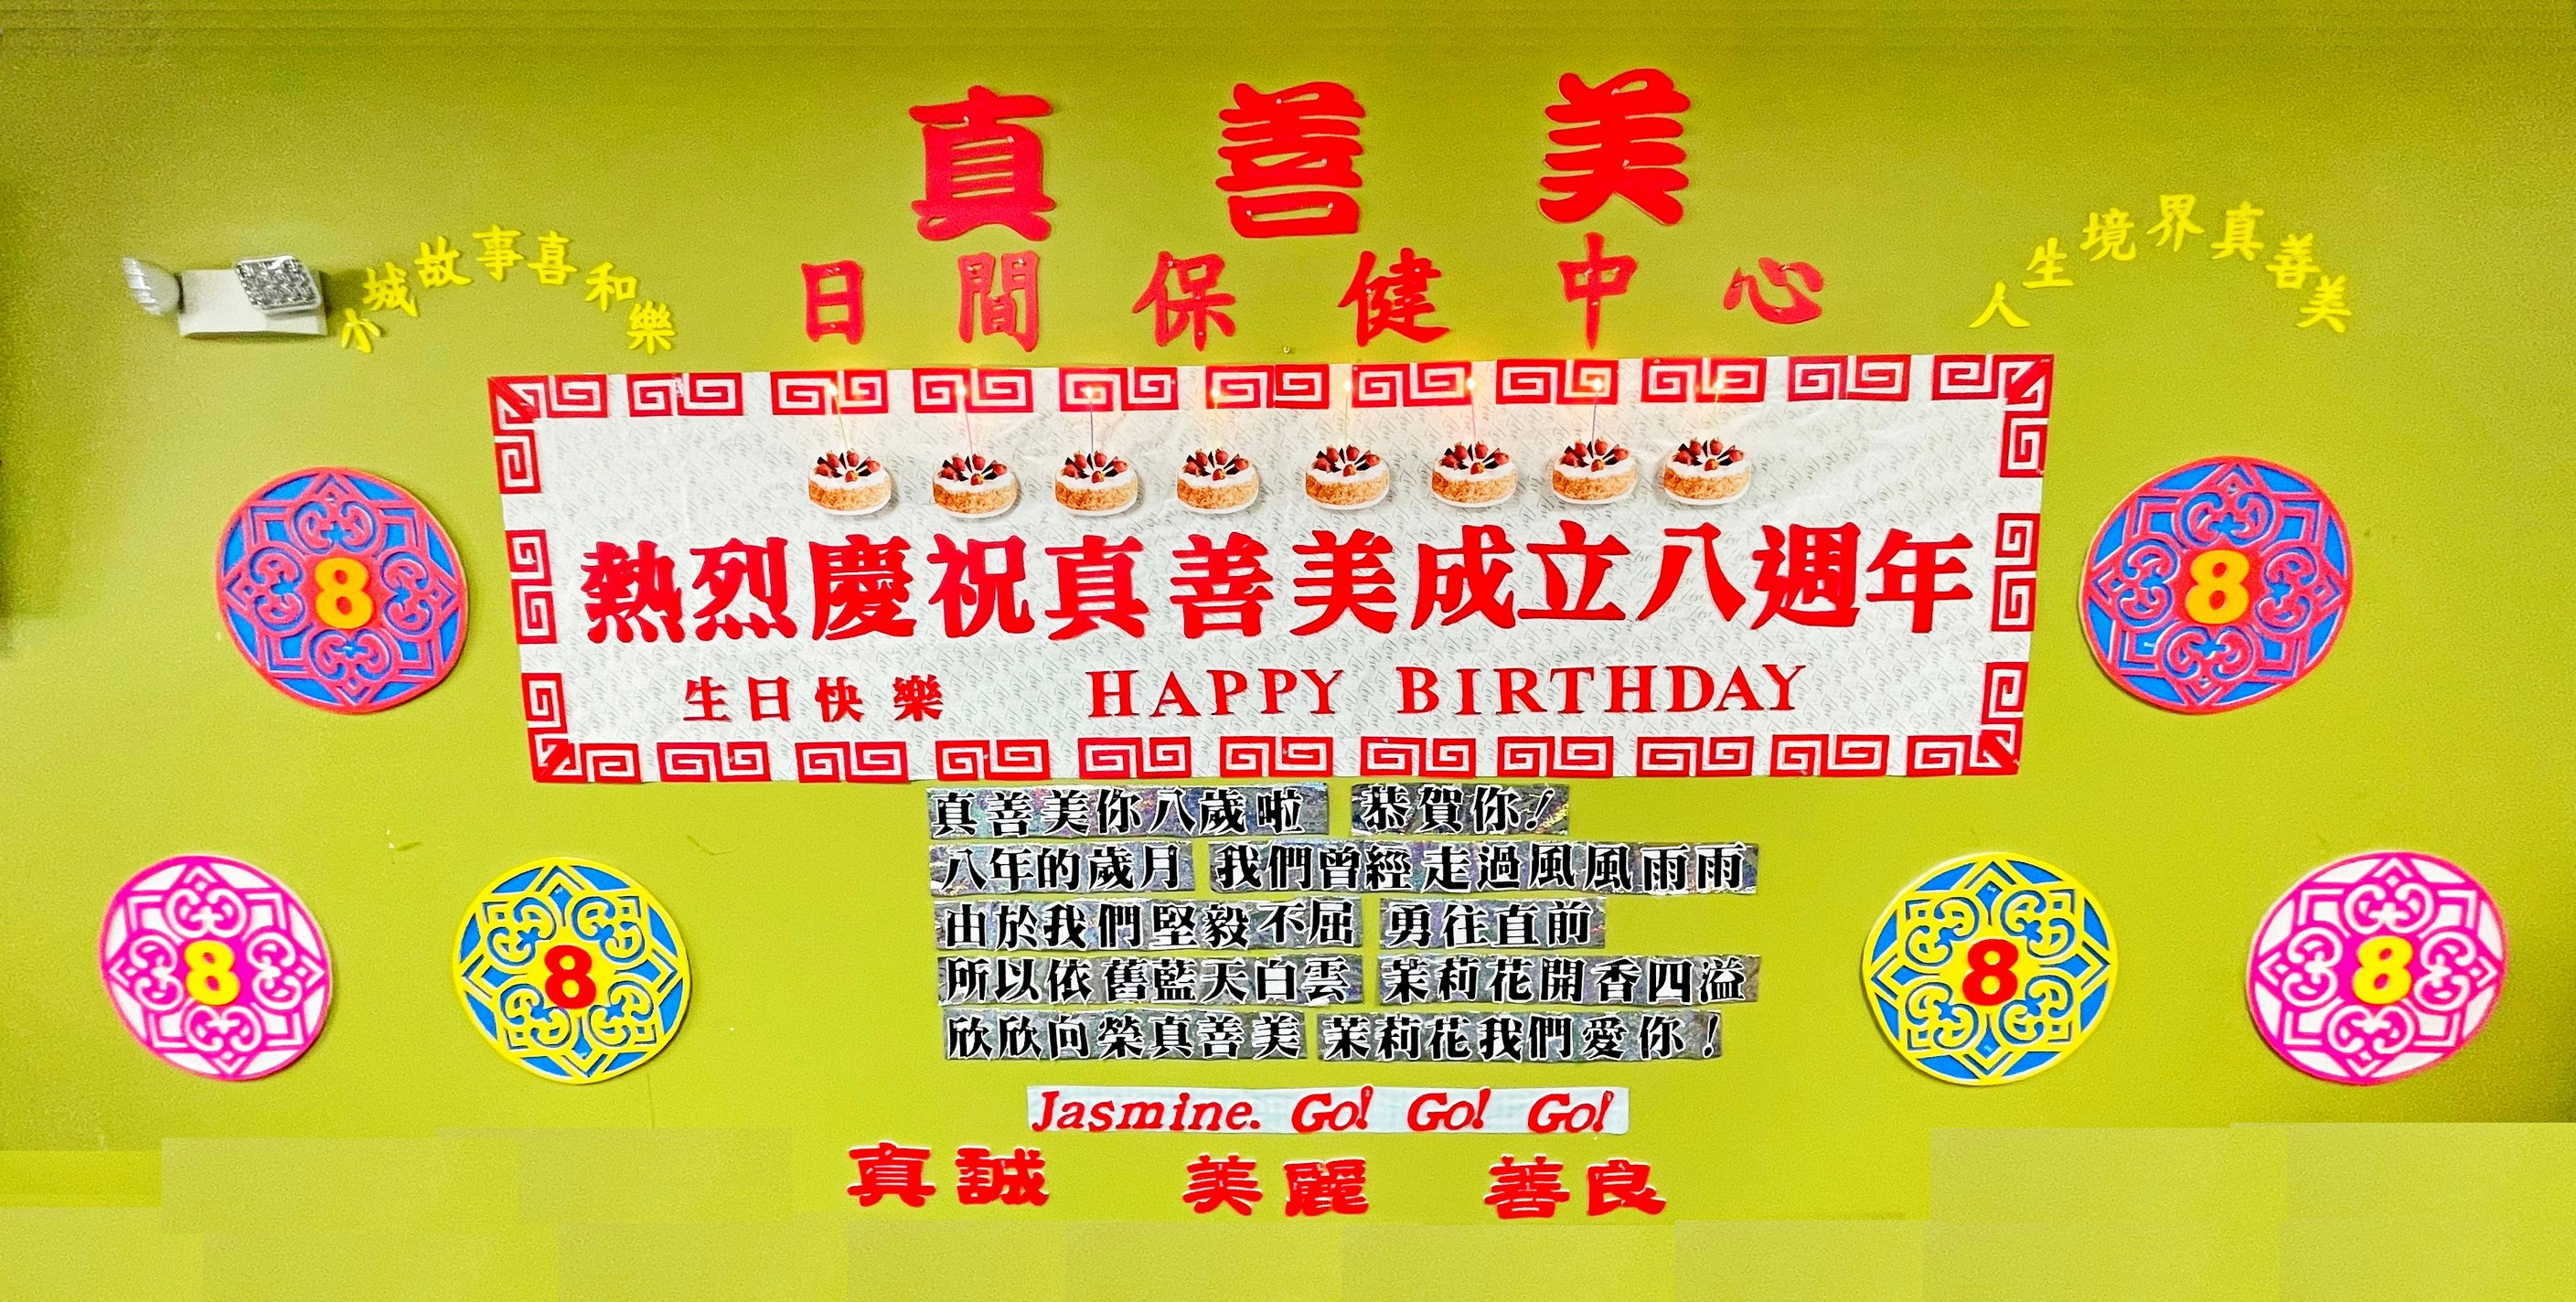 真善美
日間保健中心
小城故事喜和樂
人生境界真善美
熱烈慶祝真善美成立八週年
生日快樂 HAPPY BIRTHDAY
8
8
真善美你八歲啦 恭賀你!
八年的歲月 我們曾經走過風風雨雨
由於我們堅毅不屈 勇往直前
所以依舊藍天白雲 茉莉花開香四溢
欣欣向榮真善美 茉莉花我們愛你!
8
8
8
8
Jasmine. Go! Go! Go!
真誠 美麗 善良